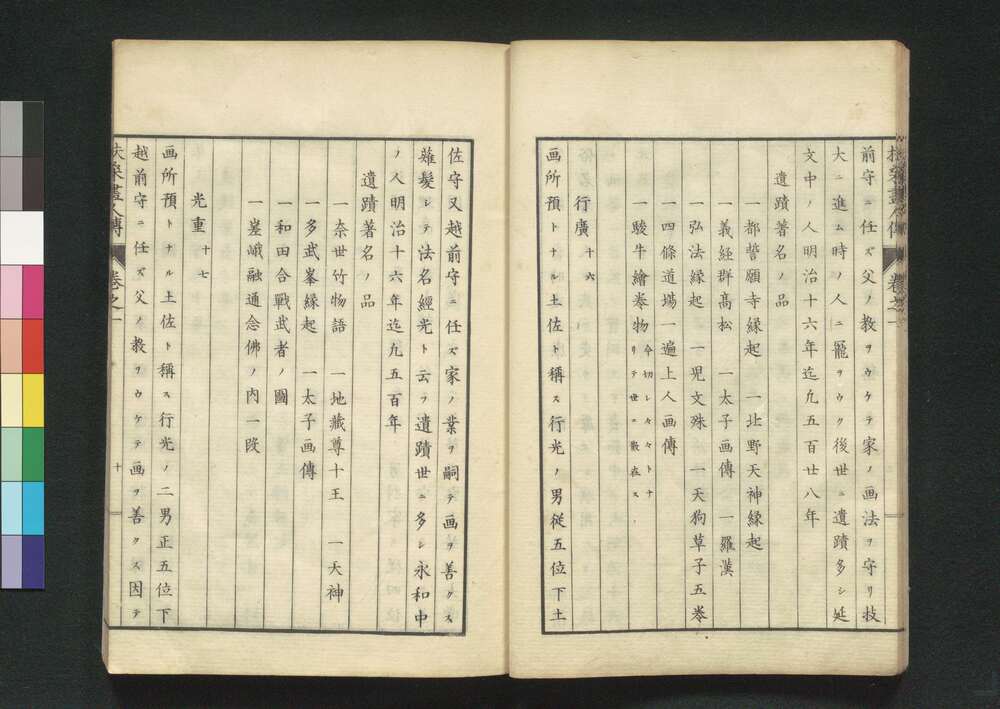 扶桑畫人傳 卷之一
前守ニ任ズ父ノ教ヲウケテ家ノ画法ヲ守リ技
大ニ進ム時ノ人ニ寵ヲウク後世ニ遺蹟多シ延
文中ノ人明治十六年迄九五百廿八年
遺蹟著名ノ品
一都誓願寺縁起 一北野天神縁起
一義経群髙松 一太子画傳 一羅漢
一弘法縁起 一児文殊 一天狗草子五巻
一四條道場一遍上人画傳
一駿牛繪巻物 今切レ々々トナリテ世ニ散在ス
行廣 十六
画所預トナル土佐ト稱ス行光ノ男従五位下土
佐守又越前守ニ任ズ家ノ業ヲ嗣テ画ヲ善クス
薙髮シテ法名經光ト云フ遺蹟世ニ多シ永和中
ノ人明治十六年迄九五百年
遺蹟著名ノ品
一奈世竹物語 一地藏尊十王 一天神
一多武峯縁起 一太子画傳
一和田合戰武者ノ圖
一嵯峨融通念佛ノ内一段
光重 十七
画所預トナル土佐ト稱ス行光ノ二男正五位下
越前守ニ任ズ父ノ教ヲウケテ画ヲ善クス因テ
扶桑畫人傳 卷之一 十